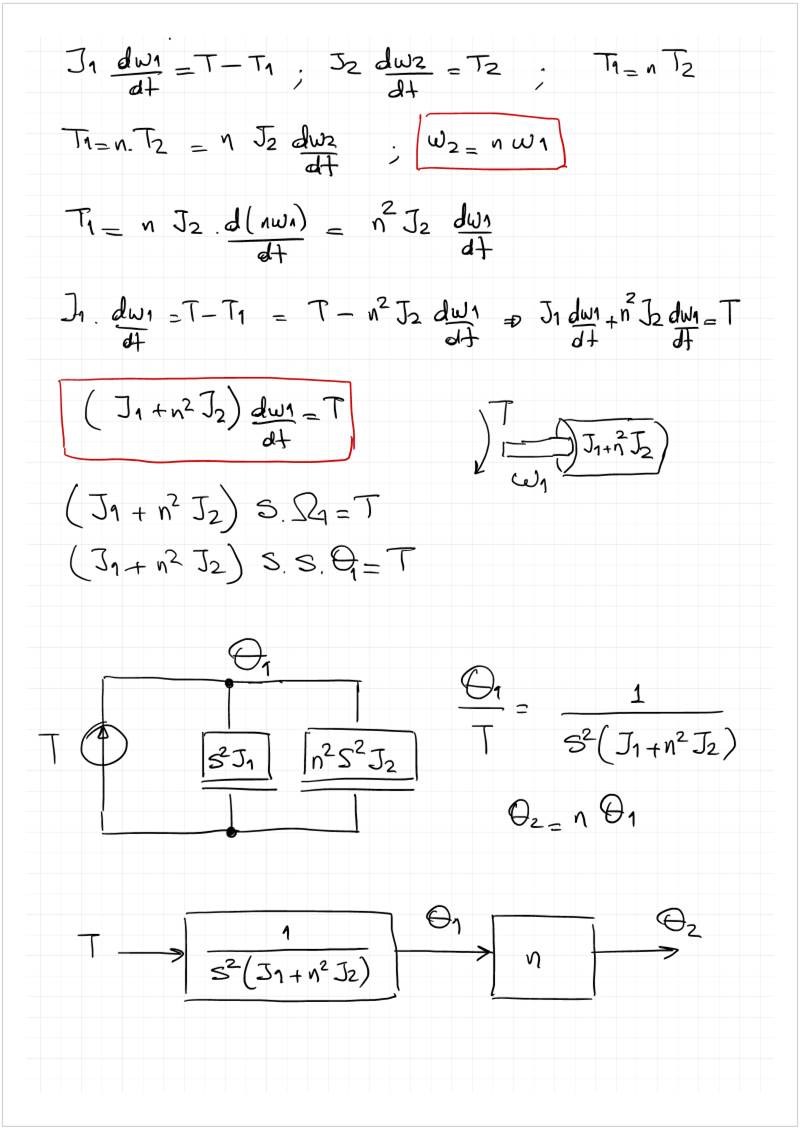 J₁ dω₁/dt = T − T₁ ; J₂ dω₂/dt = T₂ ; T₁ = n T₂
T₁ = n. T₂ = n J₂ dω₂/dt ; ω₂ = n ω₁
T₁ = n J₂ . d(nω₁)/dt = n² J₂ dω₁/dt
J₁ . dω₁/dt = T − T₁ = T − n² J₂ dω₁/dt ⇒ J₁ dω₁/dt + n² J₂ dω₁/dt = T
(J₁ + n² J₂) dω₁/dt = T
T
J₁ + n² J₂
ω₁
(J₁ + n² J₂) s. Ω₁ = T
(J₁ + n² J₂) s. s. Θ₁ = T
Θ₁
T
s² J₁
n² s² J₂
Θ₁/T = 1/(s² (J₁ + n² J₂))
Θ₂ = n Θ₁
T
1/(s² (J₁ + n² J₂))
Θ₁
n
Θ₂